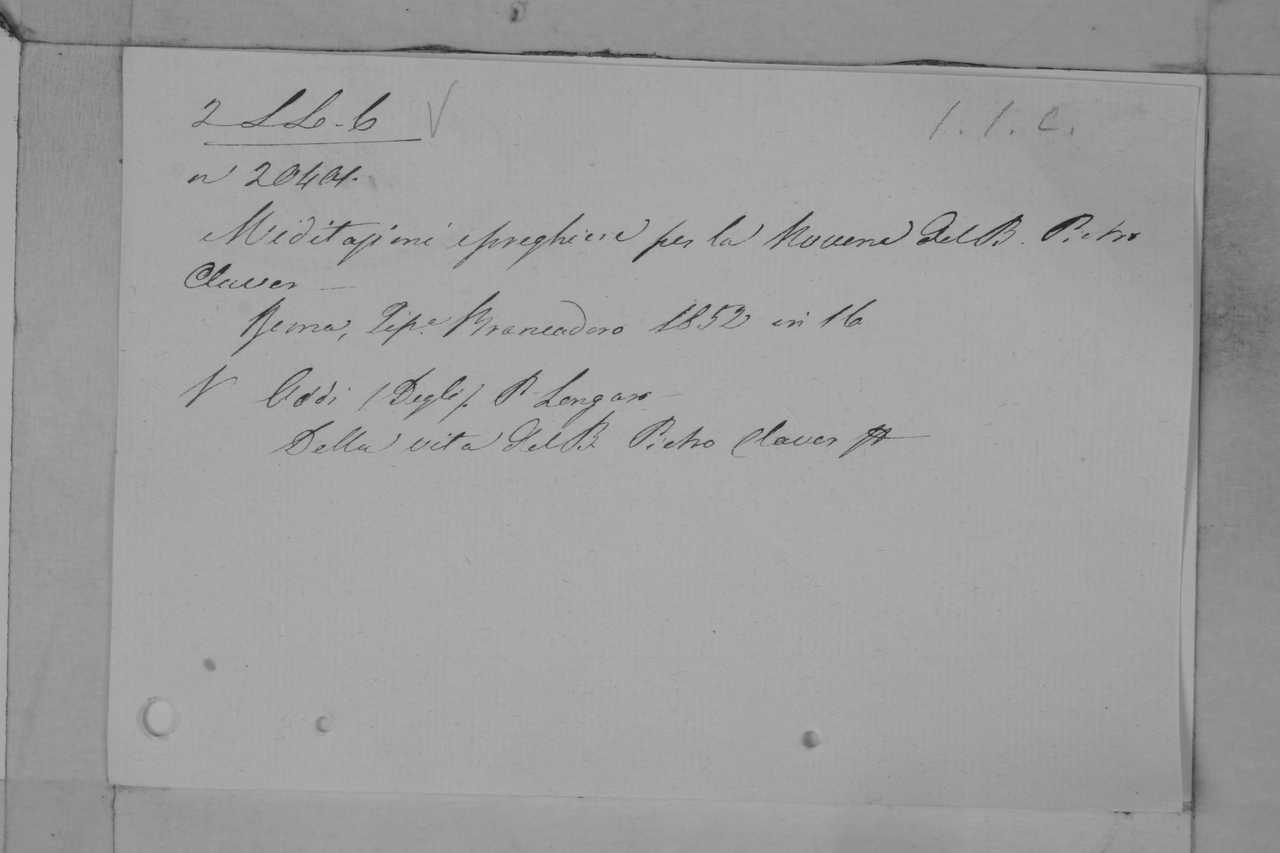 2 LL. 6 V
1. 1. C.
n 20404.
Meditazioni e preghiere per la Novena del B. Pietro
Claver —
Roma, Tip.ª Brancadoro 1852 in 16
V Oddi (Degli) P. Longaro
Della vita del B. Pietro Claver